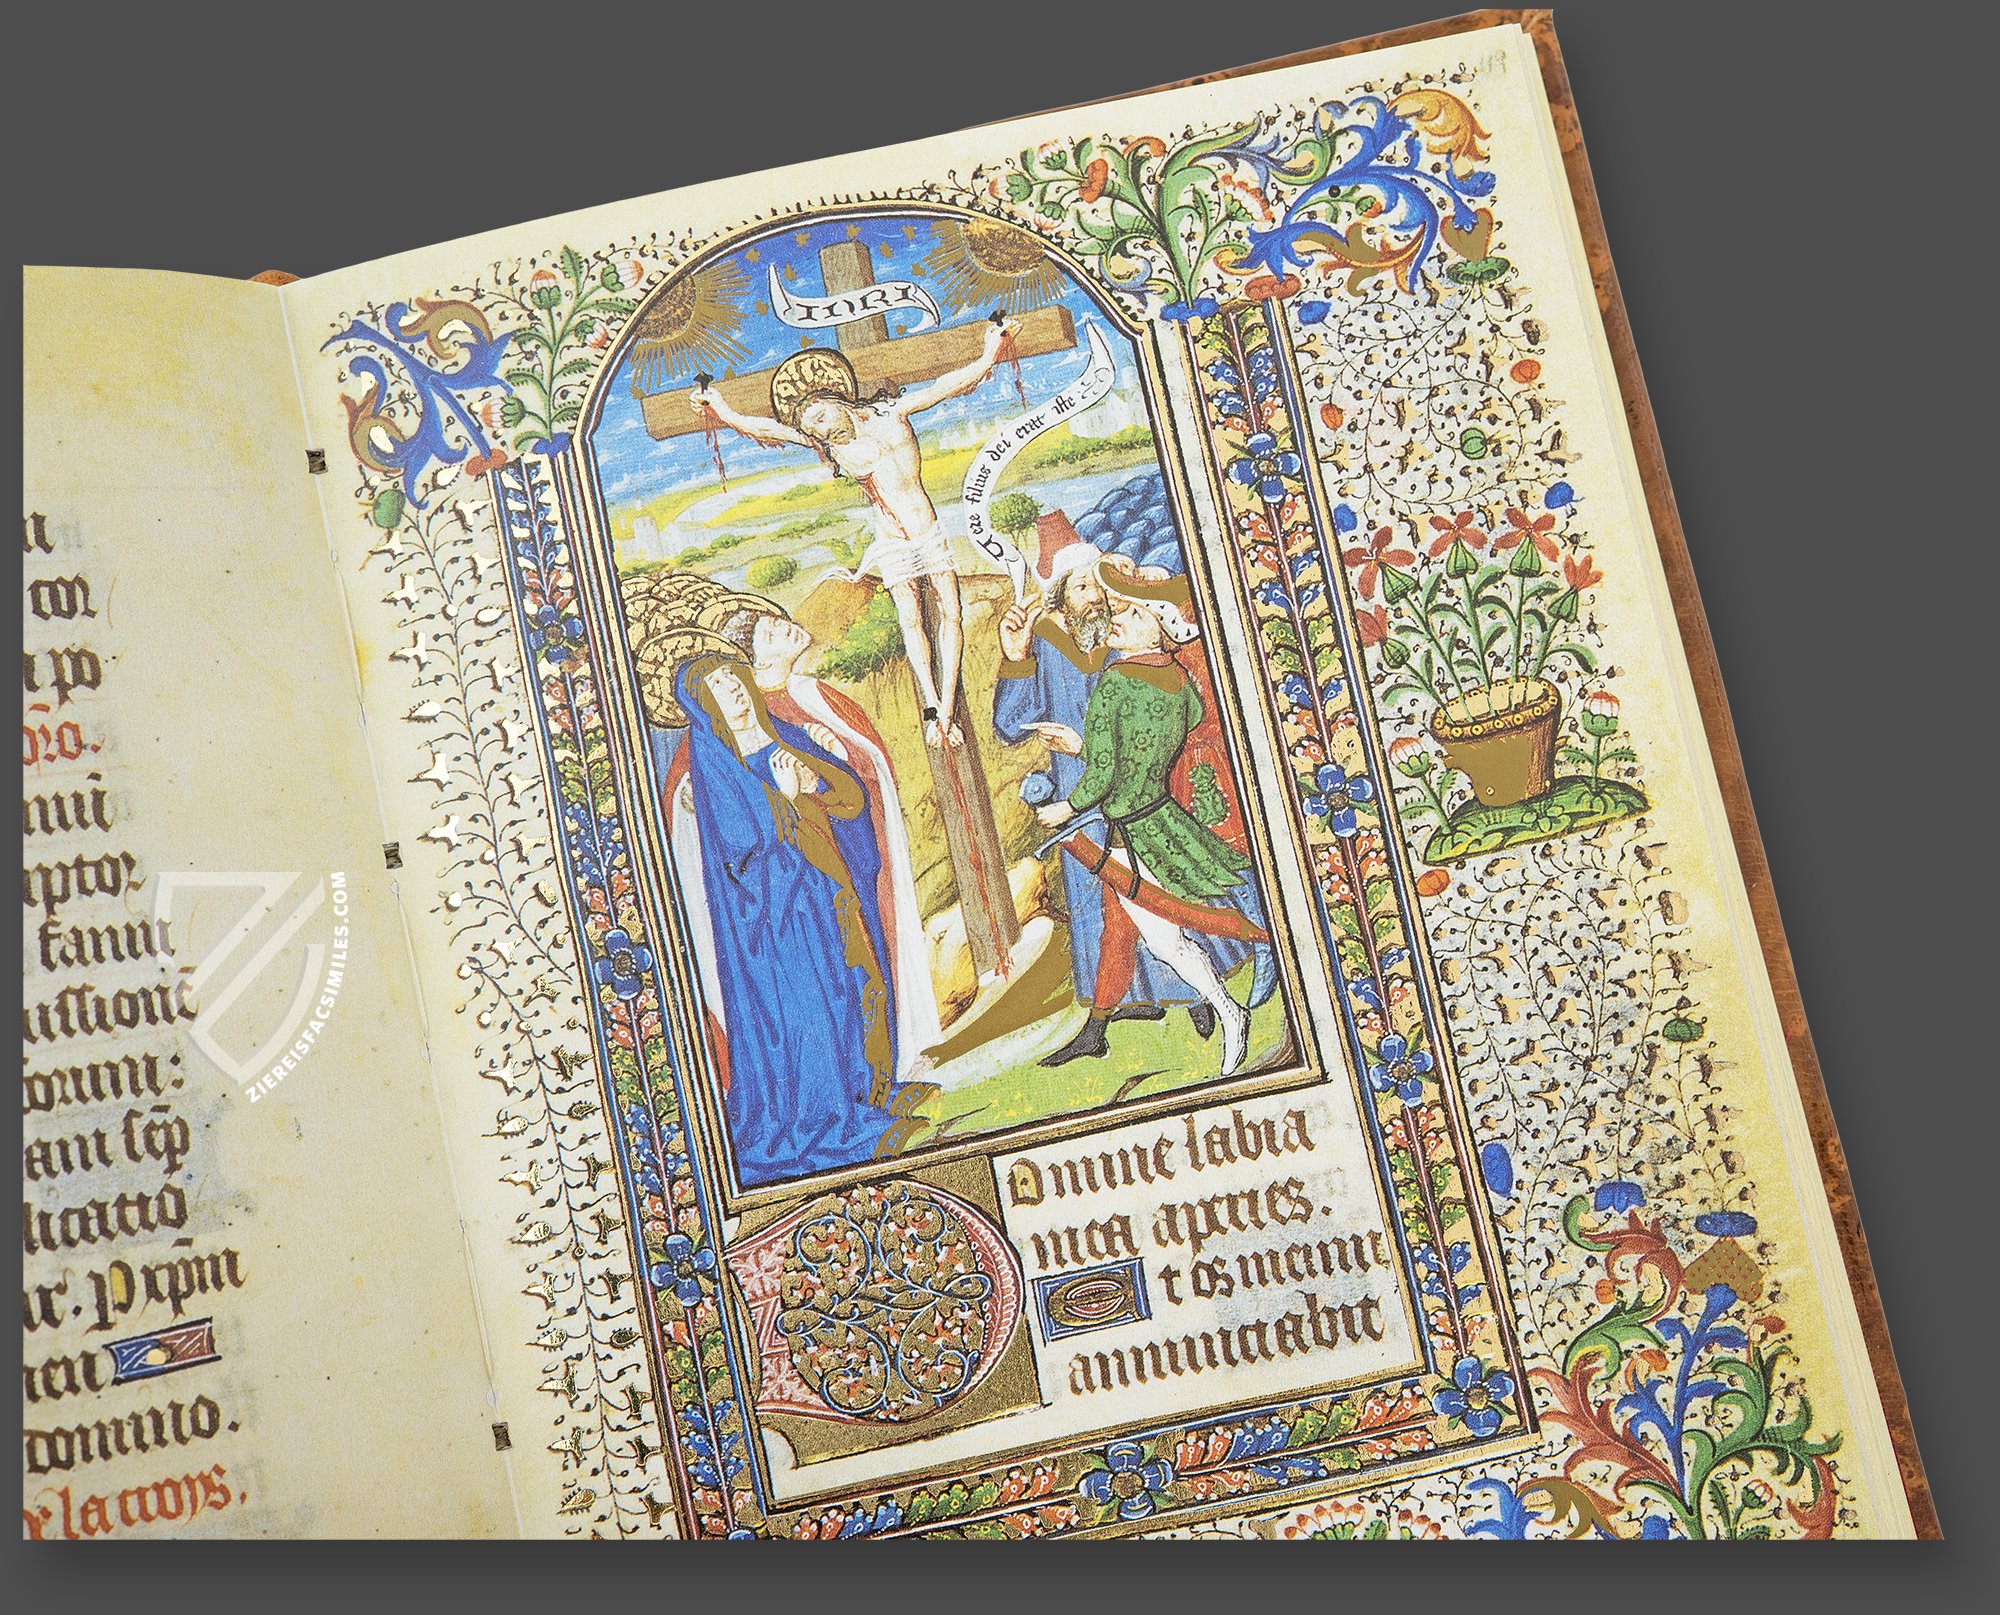 cor
po
ptor
famu
ussione
corum:
am sep̄
licatio
ur. p xp̄m
men
domino.
de la croys.
INRI
Vere filius dei erat iste
Domine labia
mea aperies.
Et os meum
annunciabit
ZIEREISFACSIMILES.COM